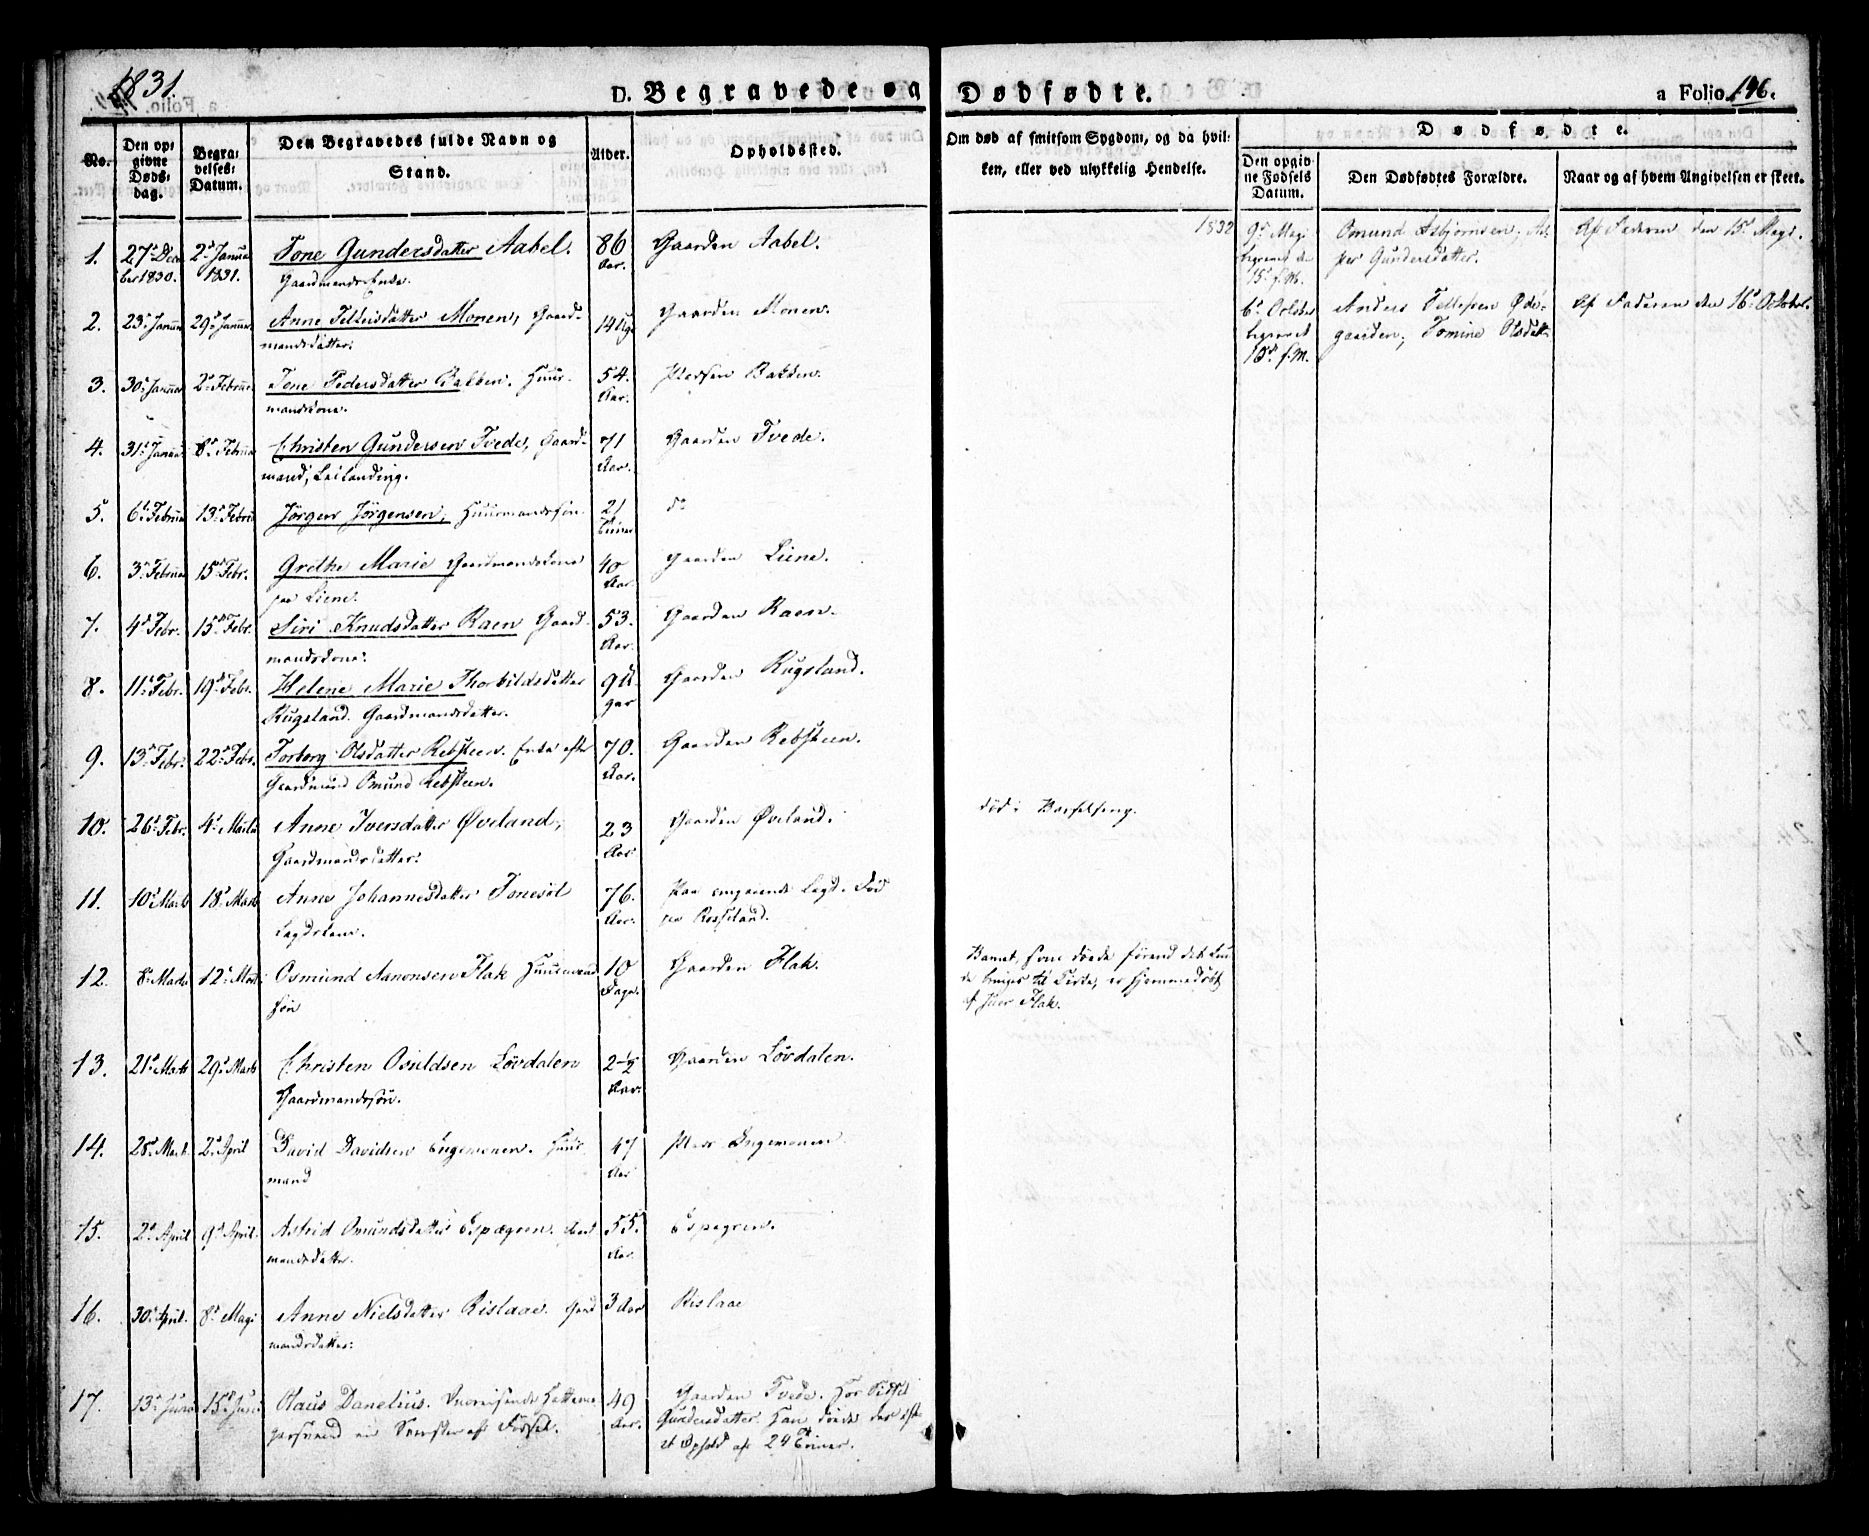 1831.
D. Begravede og Dødfødte.
a Folio 146.
No.
Den opgivne Dødsdag.
Begravelses-Datum.
Den Begravedes fulde Navn og Stand.
Alder.
Opholdssted.
Om død af smitsom Sygdom, og da hvilken, eller ved ulykkelig Hendelse.
Dødfødte.
Den opgivne Fødsels Datum.
Den Dødfødtes Forældre.
Naar og af hvem Angivelsen er skeet.
1. 27de Decbr 1830. 2den Januar 1831. Tone Gundersdatter Aabel. 86 Gaarden Aabel.
Gaardmands Enke. Aar.
2. 23de Januar 29de Januar Anne Monen, Gaard- 14 Gaarden Monen.
mandsdatter.
3. 30te Januar 2den Februar Tone Pedersdatter Bakken. Huus- 54. Pladsen Bakken.
mandskone. Aar.
4. 31te Januar 8de Februar Christen Gundersen Tvede, Gaard- 71 Gaarden Tvede.
mand, Leilænding. Aar.
5. 6te Februar 13de Februar Jörgen Jörgensen, Huusmandssön 21 do
Timer
6. 3die Februar 15de Febr. Grethe Marie Gaardmandskone 40 Gaarden Liene.
paa Liene. Aar
7. 4de Febr. 15de Febr. Siri Knudsdatter Raen Gaard- 53. Gaarden Raen.
mandskone. Aar.
8. 11te Febr. 19de Febr. Helene Marie Thorkildsdatter 9 U- Gaarden Rugsland.
Rugsland. Gaardmandsdatter. ger
9. 13de Febr. 22de Febr. Torborg Olsdatter Rebsteen. Enke efter 70. Gaarden Rebsteen.
Gaardmand Omund Rebsteen. Aar.
10. 26de Febr. 4de Marts Anne Iversdatter Øveland, 23 Gaarden Øveland. död i Barselseng.
Gaardmandsdatter. Aar.
11. 10de Marts 18de Marts Anne Johannesdatter Tonesöl 76. Paa omgaaende Lægd. Död
Lægdslem. Aar. paa Rosseland.
12. 8de Marts 12te Marts Osmund Aanonsen Flak Huusmands 10 Gaarden Flak. Barnet, som döde förend det kun-
sön Dage. de bringes til Kirke, er hjemmedöbt
af Iver Flak.
13. 21de Marts 29de Marts Christen Osuldsen Lövdalen 2½ Gaarden Lövdalen.
Gaardmandssön. Aar.
14. 28de Marts 2den April David Davidsen Engemonen. Huus- 47 Plads Engemonen
mand Aar
15. 2den April 9de April. Astrid Omundsdatter Espegren. 55. Espegren.
mandsdatter. Aar.
16. 30te April. 8de Maji Anne Nielsdatter Rislaae. Gaard 3 Aar Rislaae
mandsdatter.
17. 13de Juni 15de Juni Olaus Danelius. 49 Gaarden Tvede. Hos Sidsel
Aar. Gundersdatter. Han döde der efter
et Ophold af 24 Timer.
1832 9de Maji Omund Asbjörnsen, As- Af Faderen den 15de Maji.
begravet den Gundersdatter.
15de s. M.
6te October Anders Tellefsen Øde- Af Faderen den 16de October.
begravet gaarden, Tomine Olsdatter
s. M.